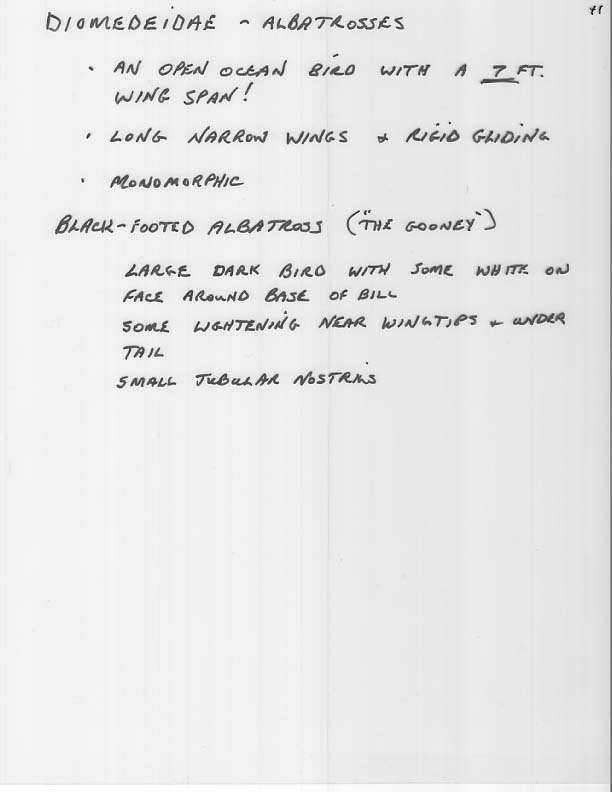 71
DIOMEDEIDAE - ALBATROSSES
• AN OPEN OCEAN BIRD WITH A 7 FT.
WING SPAN!
• LONG NARROW WINGS & RIGID GLIDING
• MONOMORPHIC
BLACK-FOOTED ALBATROSS ("THE GOONEY")
LARGE DARK BIRD WITH SOME WHITE ON
FACE AROUND BASE OF BILL
SOME LIGHTENING NEAR WINGTIPS & UNDER
TAIL
SMALL TUBULAR NOSTRILS